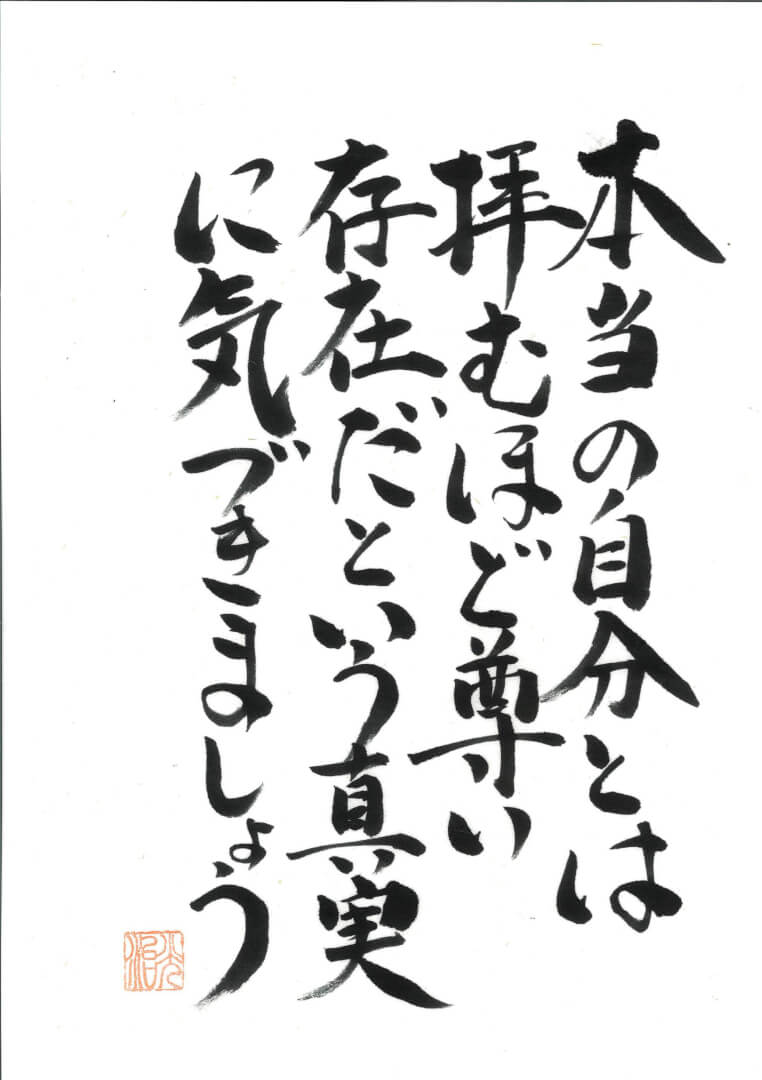 本当の自分とは
拝むほど尊い
存在だという真実
に気づきましょう